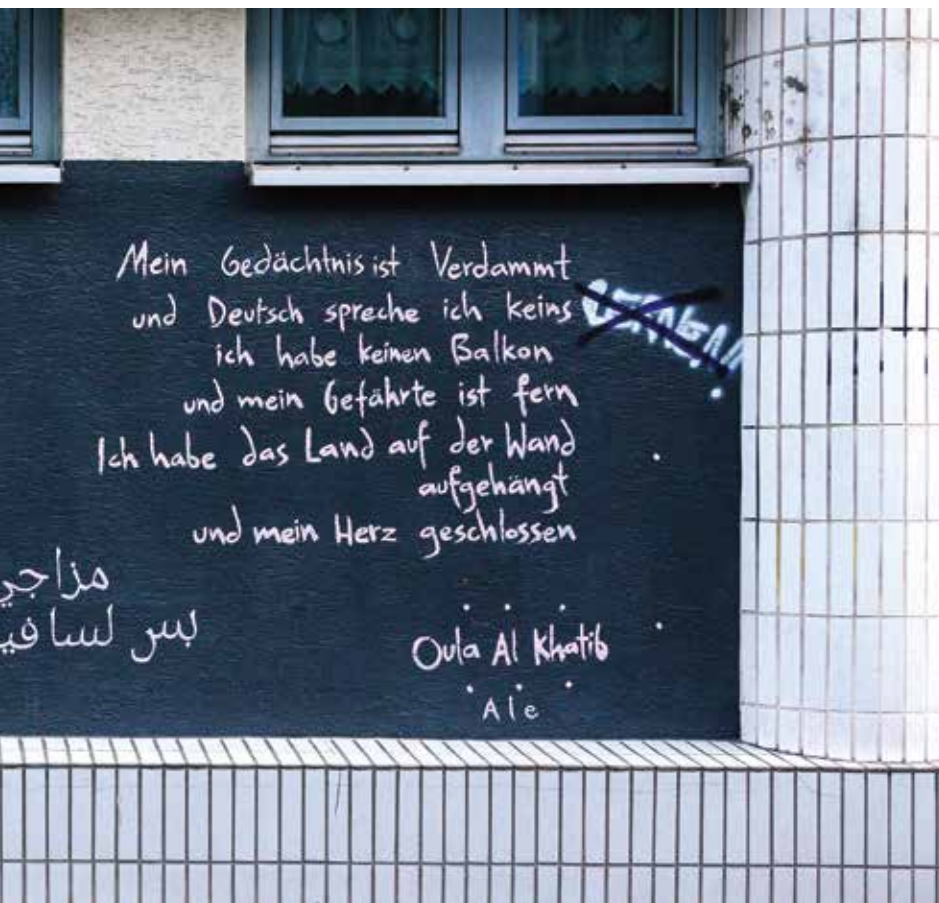 Mein Gedächtnis ist Verdammt
und Deutsch spreche ich keins
ich habe keinen Balkon
und mein Gefährte ist fern
Ich habe das Land auf der Wand
aufgehängt
und mein Herz geschlossen
مزاجي
بس لسا
Oula Al Khatib
Ale